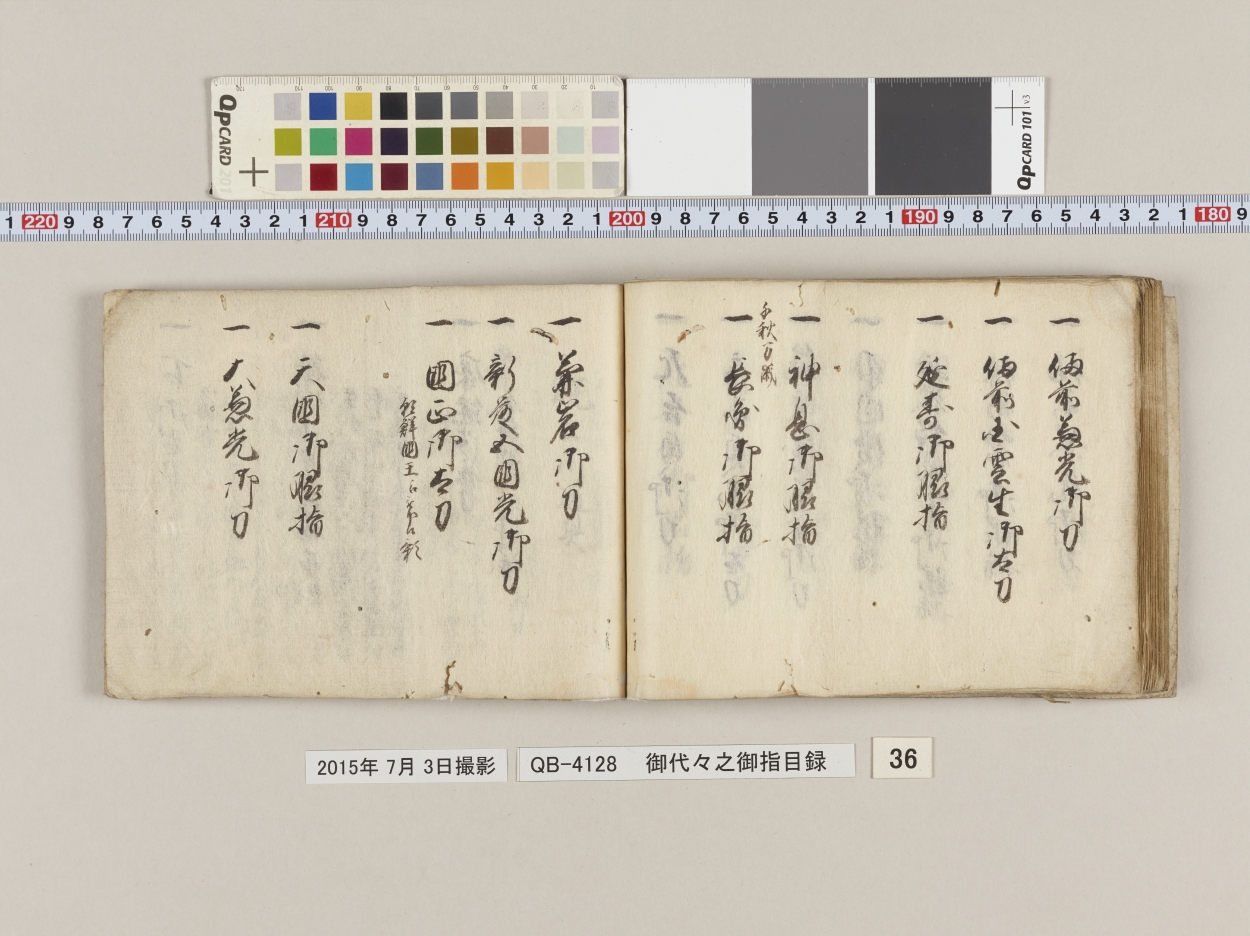 QpCARD 201
QpCARD 101 v3
1 220 9 8 7 6 5 4 3 2 1 210 9 8 7 6 5 4 3 2 1 200 9 8 7 6 5 4 3 2 1 190 9 8 7 6 5 4 3 2 1 180 9
一 備前兼光御刀
一 備前国雲生御太刀
一 延寿御脇指
一 神息御脇指
千秋万歳
一 長曽御脇指
一 岩御刀
一 新 国光御刀
一 国正御太刀
朝鮮国王
一 天国御脇指
一 大兼光御刀
2015年 7月 3日撮影
QB-4128 御代々之御指目録
36